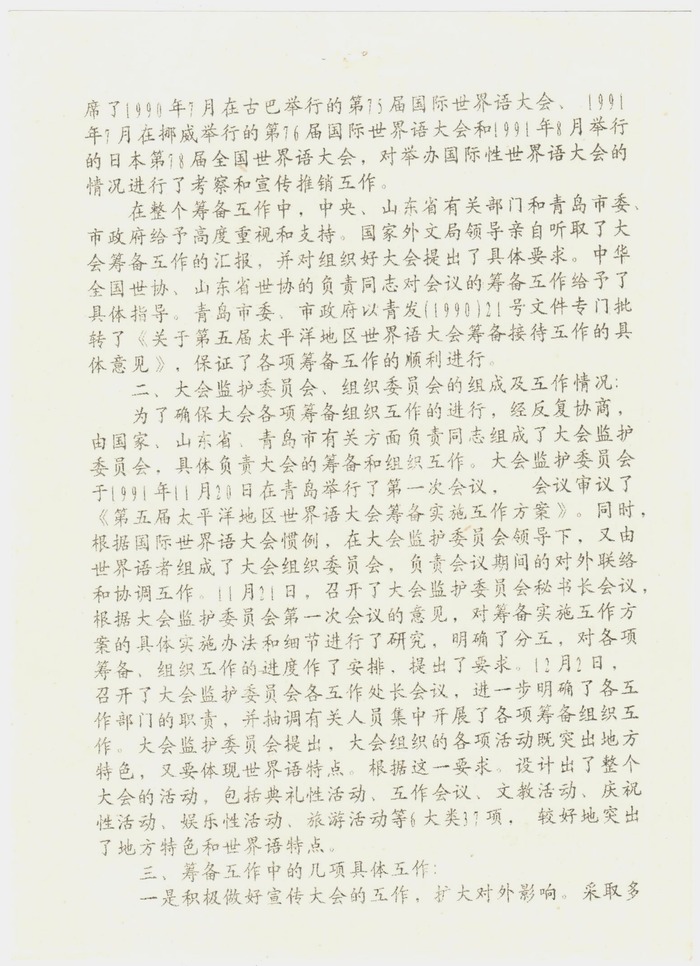 席了1990年7月在古巴举行的第75届国际世界语大会、1991
年7月在挪威举行的第76届国际世界语大会和1991年8月举行
的日本第78届全国世界语大会，对举办国际性世界语大会的
情况进行了考察和宣传推销工作。
在整个筹备工作中，中央、山东省有关部门和青岛市委、
市政府给予高度重视和支持。国家外文局领导亲自听取了大
会筹备工作的汇报，并对组织好大会提出了具体要求。中华
全国世协、山东省世协的负责同志对会议的筹备工作给予了
具体指导。青岛市委、市政府以青发(1990)21号文件专门批
转了《关于第五届太平洋地区世界语大会筹备接待工作的具
体意见》，保证了各项筹备工作的顺利进行。
二、大会监护委员会、组织委员会的组成及工作情况：
为了确保大会各项筹备组织工作的进行，经反复协商，
由国家、山东省、青岛市有关方面负责同志组成了大会监护
委员会，具体负责大会的筹备和组织工作。大会监护委员会
于1991年11月20日在青岛举行了第一次会议，会议审议了
《第五届太平洋地区世界语大会筹备实施工作方案》。同时，
根据国际世界语大会惯例，在大会监护委员会领导下，又由
世界语者组成了大会组织委员会，负责会议期间的对外联络
和协调工作。11月21日，召开了大会监护委员会秘书长会议，
根据大会监护委员会第一次会议的意见，对筹备实施工作方
案的具体实施办法和细节进行了研究，明确了分工，对各项
筹备、组织工作的进度作了安排，提出了要求。12月2日，
召开了大会监护委员会各工作处长会议，进一步明确了各工
作部门的职责，并抽调有关人员集中开展了各项筹备组织工
作。大会监护委员会提出，大会组织的各项活动既突出地方
特色，又要体现世界语特点。根据这一要求。设计出了整个
大会的活动，包括典礼性活动、工作会议、文教活动、庆祝
性活动、娱乐性活动、旅游活动等6大类37项，较好地突出
了地方特色和世界语特点。
三、筹备工作中的几项具体工作：
一是积极做好宣传大会的工作，扩大对外影响。采取多